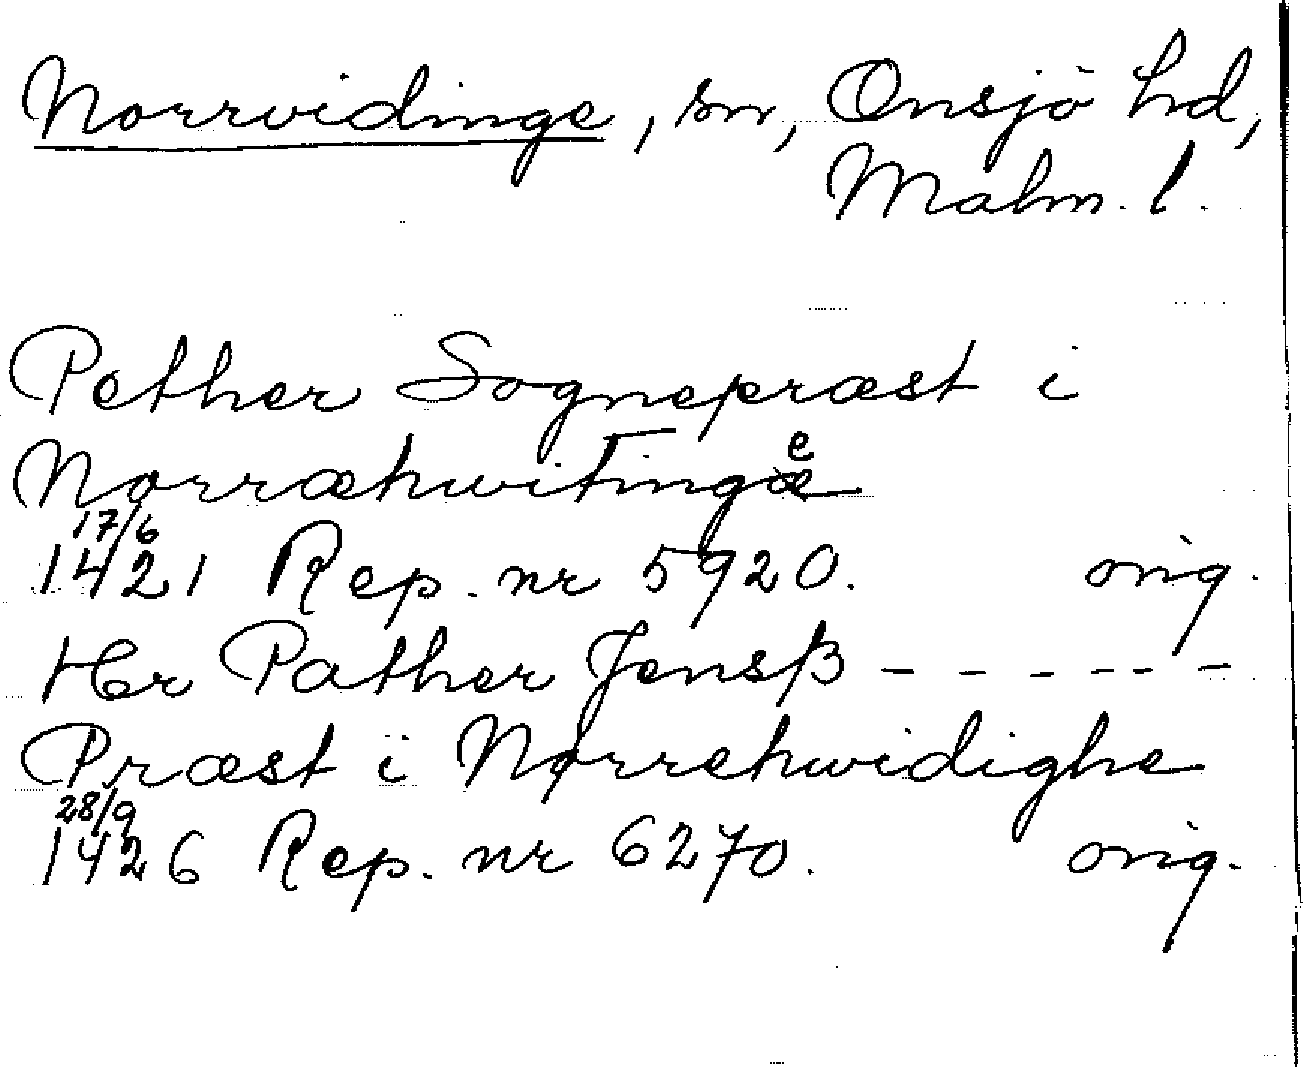 Norrvidinge, sn, Onsjö hd,
Malm. l.
Pether Sognepræst i
Norræhwitingæ e
17/6
1421 Rep. nr 5920. orig.
Hr Pather Jensβ - - - - - -
Præst i Nørrehwidighe
28/9
1426 Rep. nr 6270. orig.